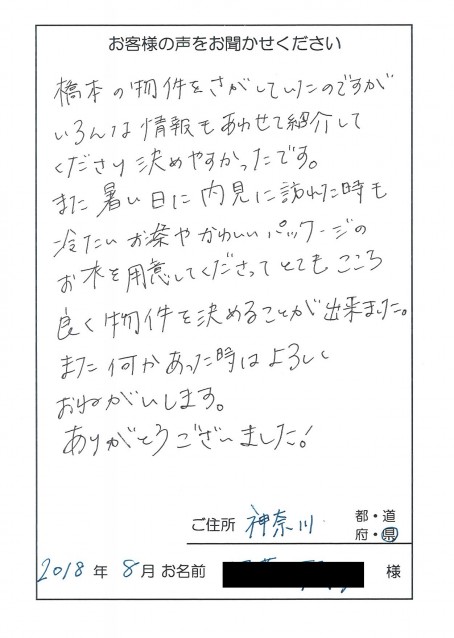 お客様の声をお聞かせください
橋本の物件をさがしていたのですが
いろんな情報もあわせて紹介して
くださり決めやすかったです。
また暑い日に内見に訪れた時も
冷たいお茶やかわいいパッケージの
お水を用意してくださってとてもこころ
良く物件を決めることが出来ました。
また何かあった時はよろしく
おねがいします。
ありがとうございました!
ご住所 神奈川 都・道
府・県
2018年 8月 お名前 様